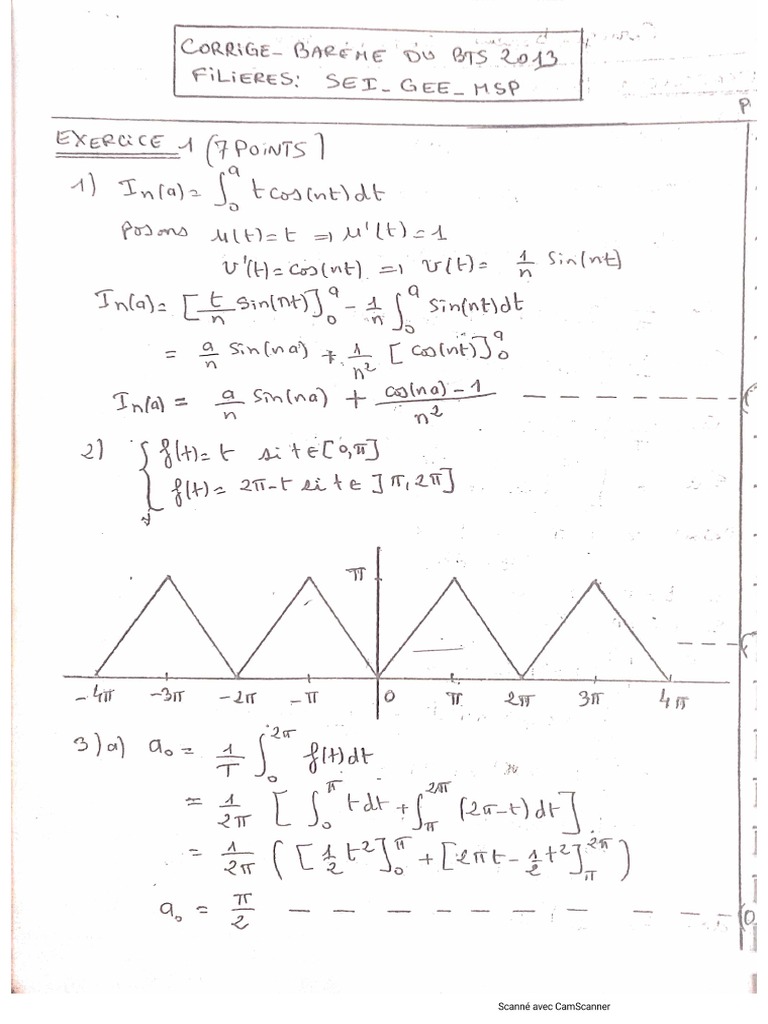 CORRIGE_BARÈME DU BTS 2013
FILIERES: SEI_GEE_MSP
P
EXERCICE 1 (7 POINTS)
1) In(a) = ∫₀ᵃ t cos(nt) dt
Posons u(t) = t ⇒ u'(t) = 1
v'(t) = cos(nt) ⇒ v(t) = 1/n sin(nt)
In(a) = [t/n sin(nt)]₀ᵃ - 1/n ∫₀ᵃ sin(nt) dt
= a/n sin(na) + 1/n² [cos(nt)]₀ᵃ
In(a) = a/n sin(na) + (cos(na) - 1)/n²
2) { f(t) = t si t ∈ [0, π]
f(t) = 2π - t si t ∈ ]π, 2π]
π
-4π -3π -2π -π 0 π 2π 3π 4π
3) a) a₀ = 1/T ∫₀^2π f(t) dt
= 1/2π [∫₀^π t dt + ∫π^2π (2π - t) dt]
= 1/2π ([1/2 t²]₀^π + [2πt - 1/2 t²]π^2π)
a₀ = π/2
Scanné avec CamScanner